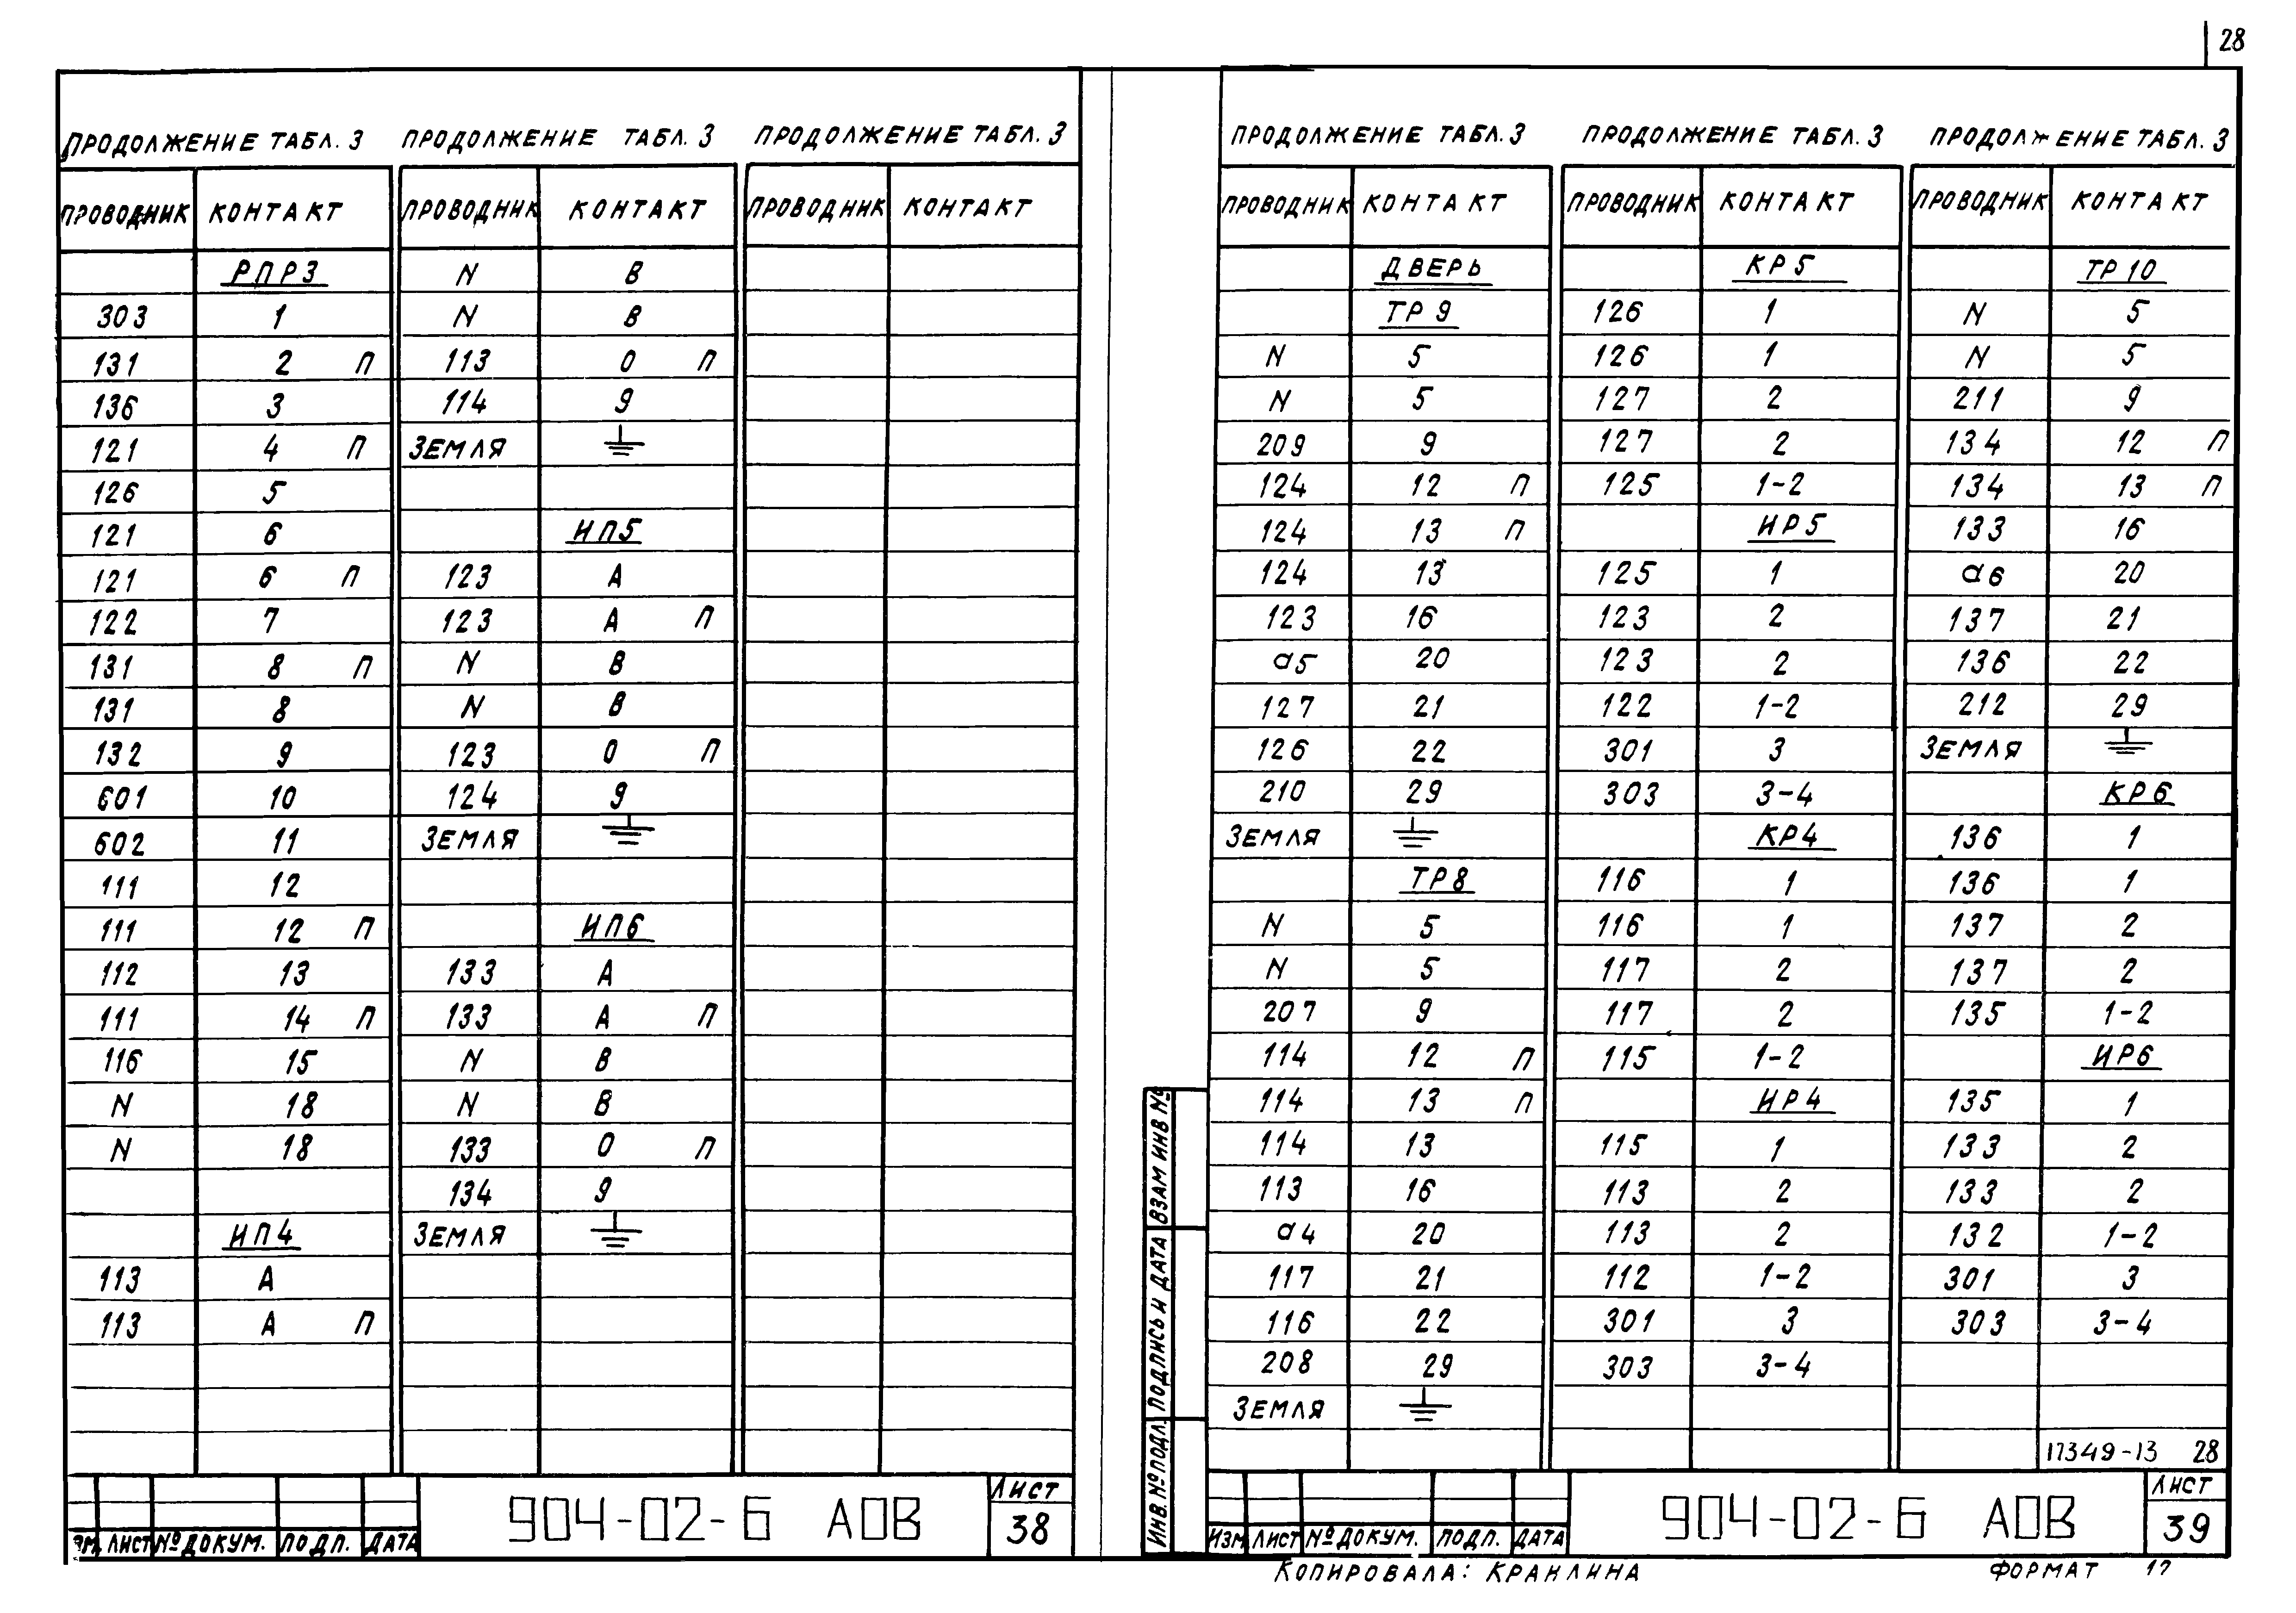 28
ПРОДОЛЖЕНИЕ ТАБЛ. 3
ПРОВОДНИК КОНТАКТ
РПР3
303 1
131 2 П
136 3
121 4 П
126 5
121 6
121 6 П
122 7
131 8 П
131 8
132 9
601 10
602 11
111 12
111 12 П
112 13
111 14 П
116 15
N 18
N 18
ИП4
113 А
113 А П
ПРОДОЛЖЕНИЕ ТАБЛ. 3
ПРОВОДНИК КОНТАКТ
N В
N В
113 0 П
114 9
ЗЕМЛЯ ⏚
ИП5
123 А
123 А П
N В
N В
123 0 П
124 9
ЗЕМЛЯ ⏚
ИП6
133 А
133 А П
N В
N В
133 0 П
134 9
ЗЕМЛЯ ⏚
ПРОДОЛЖЕНИЕ ТАБЛ. 3
ПРОВОДНИК КОНТАКТ
ЛИСТ № ДОКУМ. ПОДП. ДАТА
904-02-6 АОВ
ЛИСТ
38
ПРОДОЛЖЕНИЕ ТАБЛ. 3
ПРОВОДНИК КОНТАКТ
ДВЕРЬ
ТР9
N 5
N 5
209 9
124 12 П
124 13 П
124 13
123 16
а5 20
127 21
126 22
210 29
ЗЕМЛЯ ⏚
ТР8
N 5
N 5
207 9
114 12 П
114 13 П
114 13
113 16
а4 20
117 21
116 22
208 29
ЗЕМЛЯ ⏚
ПРОДОЛЖЕНИЕ ТАБЛ. 3
ПРОВОДНИК КОНТАКТ
КР5
126 1
126 1
127 2
127 2
125 1-2
ИР5
125 1
123 2
123 2
122 1-2
301 3
303 3-4
КР4
116 1
116 1
117 2
117 2
115 1-2
ИР4
115 1
113 2
113 2
112 1-2
301 3
303 3-4
ПРОДОЛЖЕНИЕ ТАБЛ. 3
ПРОВОДНИК КОНТАКТ
ТР10
N 5
N 5
211 9
134 12 П
134 13 П
133 16
а6 20
137 21
136 22
212 29
ЗЕМЛЯ ⏚
КР6
136 1
136 1
137 2
137 2
135 1-2
ИР6
135 1
133 2
133 2
132 1-2
301 3
303 3-4
17349-13 28
ИНВ. № ПОДЛ. ПОДПИСЬ И ДАТА ВЗАМ ИНВ №
ИЗМ ЛИСТ № ДОКУМ. ПОДП. ДАТА
904-02-6 АОВ
ЛИСТ
39
КОПИРОВАЛА: КРАНЛИНА
ФОРМАТ 12